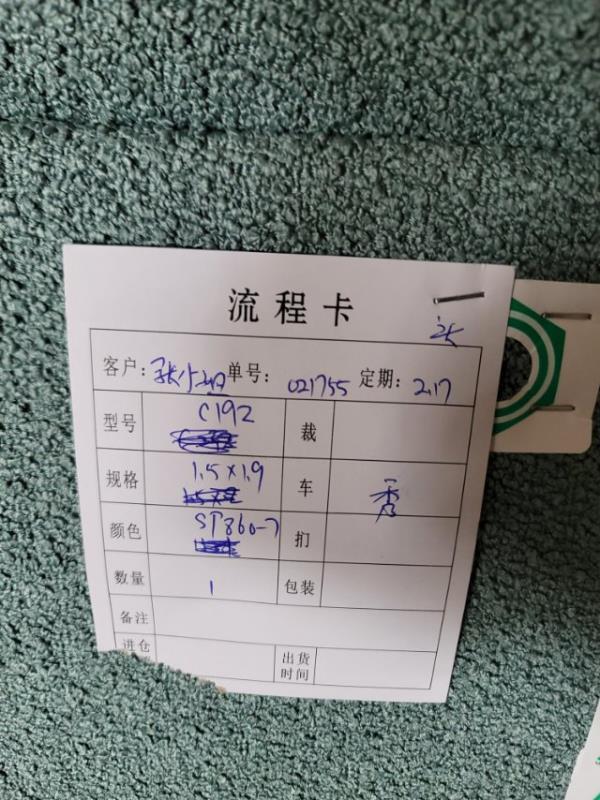 流程卡
客户: 张 单号: 021755 定期: 2.17
型号 C192 裁
规格 1.5×1.9 车 秀
颜色 SP860-7 扪
数量 1 包装
备注
进仓 出货时间